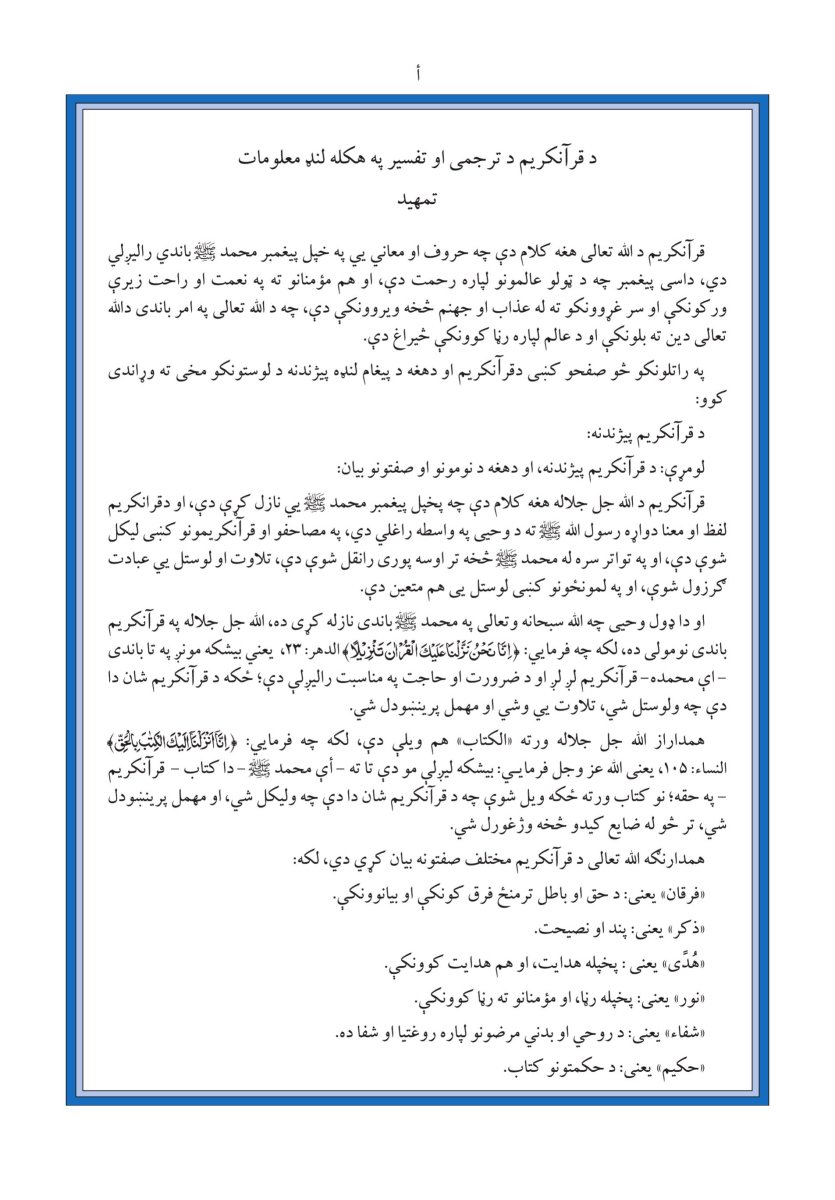 أ
د قرآنکریم د ترجمی او تفسیر په هکله لنډ معلومات
تمهید
قرآنکریم د الله تعالی هغه کلام دې چه حروف او معاني یي په خپل پیغمبر محمد ﷺ باندي رالیږلي
دي، داسی پیغمبر چه د ټولو عالمونو لپاره رحمت دې، او هم مؤمنانو ته په نعمت او راحت زیرې
ورکونکې او سر غړوونکو ته له عذاب او جهنم څخه ویروونکې دې، چه د الله تعالی په امر باندی دالله
تعالی دین ته بلونکې او د عالم لپاره رڼا کوونکې څیراغ دې.
په راتلونکو څو صفحو کښی دقرآنکریم او دهغه د پیغام لنډه پیژندنه د لوستونکو مخی ته وړاندی
کوو:
د قرآنکریم پیژندنه:
لومړې: د قرآنکریم پیژندنه، او دهغه د نومونو او صفتونو بیان:
قرآنکریم د الله جل جلاله هغه کلام دې چه پخپل پیغمبر محمد ﷺ یي نازل کړې دې، او دقرانکریم
لفظ او معنا دواړه رسول الله ﷺ ته د وحیی په واسطه راغلي دي، په مصاحفو او قرآنکریمونو کښی لیکل
شوې دې، او په تواتر سره له محمد ﷺ څخه تر اوسه پوری رانقل شوې دې، تلاوت او لوستل یي عبادت
ګرزول شوې، او په لمونځونو کښی لوستل یی هم متعین دې.
او دا ډول وحیی چه الله سبحانه وتعالی په محمد ﷺ باندی نازله کړی ده، الله جل جلاله په قرآنکریم
باندی نومولی ده، لکه چه فرمایي: ﴿اِنَّا نَحْنُ نَزَّلْنَا عَلَیْكَ الْقُرْاٰنَ تَنْزِیْلًا﴾ الدهر: ۲۳، یعني بیشکه مونږ په تا باندی
– اې محمده– قرآنکریم لږ لږ او د ضرورت او حاجت په مناسبت رالیږلې دې؛ ځکه د قرآنکریم شان دا
دې چه ولوستل شي، تلاوت یي وشي او مهمل پرینښودل شي.
همداراز الله جل جلاله ورته «الکتاب» هم ویلې دې، لکه چه فرمایي: ﴿اِنَّاۤ اَنْزَلْنَاۤ اِلَیْكَ الْكِتٰبَ بِالْحَقِّ﴾
النساء: ۱۰۵، یعنی الله عز وجل فرمایـي: بیشکه لیږلې مو دې تا ته – أې محمد ﷺ – دا کتاب – قرآنکریم
– په حقه؛ نو کتاب ورته ځکه ویل شوې چه د قرآنکریم شان دا دې چه ولیکل شي، او مهمل پرینښودل
شي، تر څو له ضایع کیدو څخه وژغورل شي.
همدارنګه الله تعالی د قرآنکریم مختلف صفتونه بیان کړي دي، لکه:
«فرقان» یعنی: د حق او باطل ترمنځ فرق کونکې او بیانوونکې.
«ذکر» یعنی: پند او نصیحت.
«هُدًی» یعنی : پخپله هدایت، او هم هدایت کوونکې.
«نور» یعنی: پخپله رڼا، او مؤمنانو ته رڼا کوونکې.
«شفاء» یعنی: د روحي او بدني مرضونو لپاره روغتیا او شفا ده.
«حکیم» یعنی: د حکمتونو کتاب.